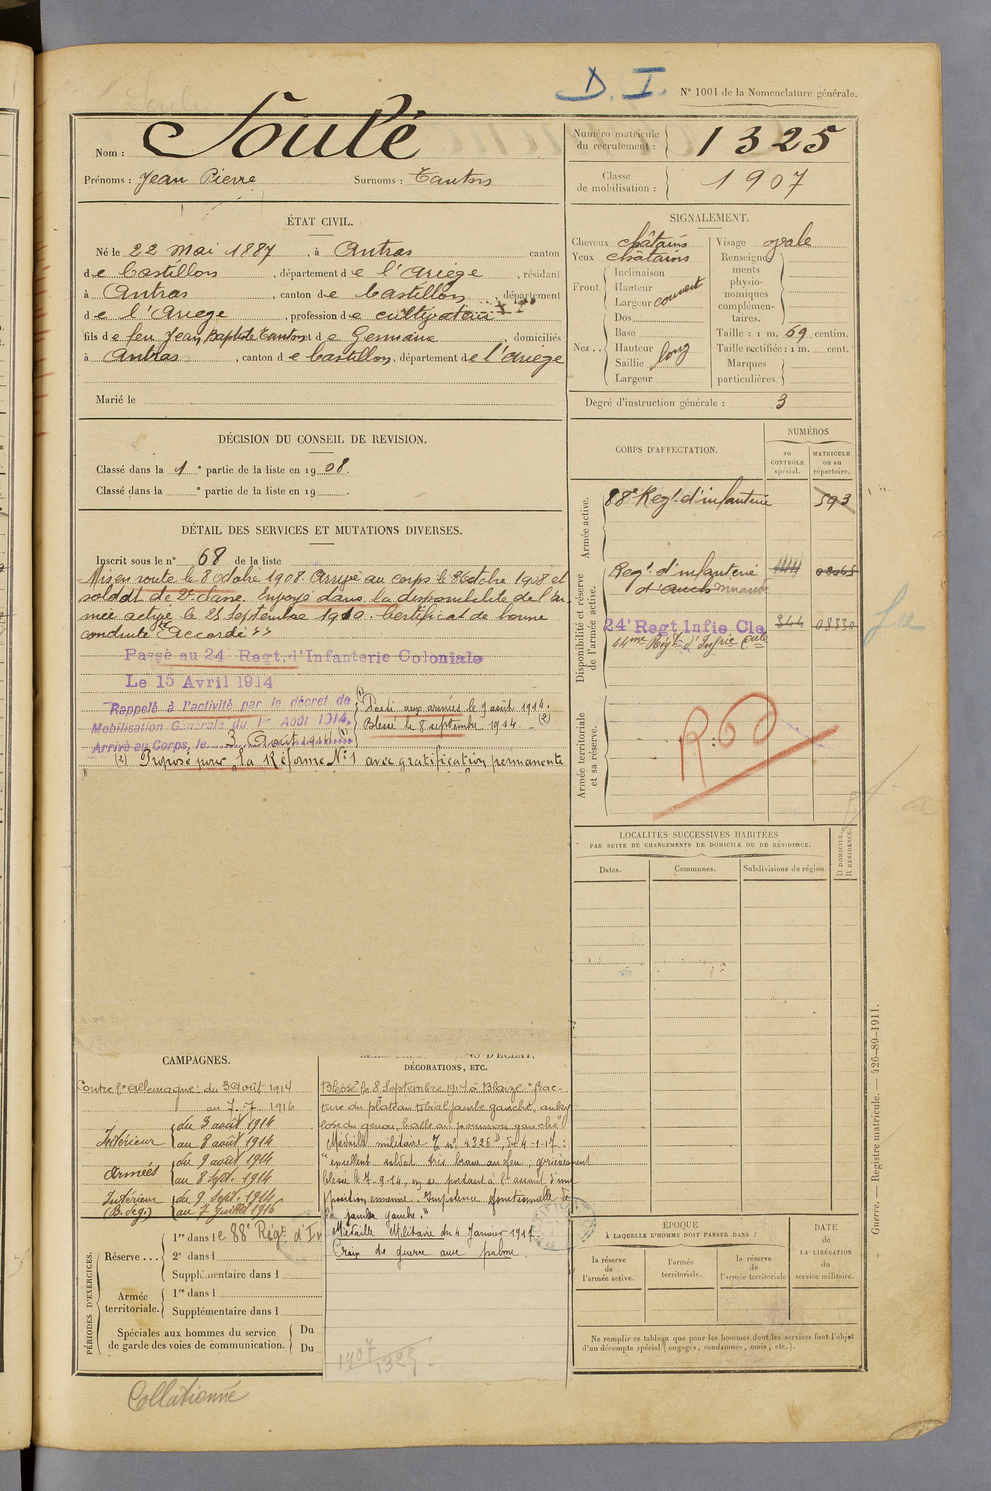 D. I.
N° 1001 de la Nomenclature générale.
Nom : Soulé
Prénoms : Jean Pierre Surnoms : Tantos
Numéro matricule du recrutement : 1325
Classe de mobilisation : 1907
ÉTAT CIVIL.
Né le 22 mai 1887, à Antras canton
de Castillon, département de l'Ariège, résidant
à Antras, canton de Castillon, département
de l'Ariège, profession de cultivateur
fils de feu Jean Baptiste Tantos et de Germaine, domiciliés
à Antras, canton de Castillon, département de l'Ariège
Marié le
SIGNALEMENT.
Cheveux châtains
Yeux châtains
Front. Inclinaison
Hauteur
Largeur couvert
Nez... Dos
Base
Hauteur
Saillie long
Largeur
Visage ovale
Renseignements physionomiques complémentaires.
Taille : 1 m. 69 centim.
Taille rectifiée : 1 m. cent.
Marques particulières.
Degré d'instruction générale : 3
DÉCISION DU CONSEIL DE REVISION.
Classé dans la 1e partie de la liste en 1908.
Classé dans la e partie de la liste en 19 .
CORPS D'AFFECTATION.
NUMÉROS
au CONTRÔLE spécial.
MATRICULE ou au répertoire.
Armée active.
88e Regt. d'infanterie 593
Disponibilité et réserve de l'armée active.
Regt d'infanterie
24e Regt Infie Cle 344 08330
44me Régt d'Infrie Cale
Armée territoriale et sa réserve.
DÉTAIL DES SERVICES ET MUTATIONS DIVERSES.
Inscrit sous le n° 68 de la liste
Mis en route le 8 octobre 1908. Arrivé au corps le 8 octobre 1908 et
soldat de 2e classe. Envoyé dans la disponibilité de l'ar-
mée active le 25 septembre 1910. Certificat de bonne
conduite "Accordé"
Passé au 24 Regt. d'Infanterie Coloniale
Le 15 Avril 1914
Rappelé à l'activité par le décret de
Mobilisation Générale du 1er Août 1914.
Arrivé au Corps, le 3 Août 1914 (1)
(1) Parti aux armées le 9 août 1914.
Blessé le 8 septembre 1914. (2)
(2) Proposé pour la Réforme N° 1 avec gratification permanente
LOCALITÉS SUCCESSIVES HABITÉES
PAR SUITE DE CHANGEMENTS DE DOMICILE OU DE RÉSIDENCE.
Dates.
Communes.
Subdivisions de région.
D DOMICILE. R RÉSIDENCE.
CAMPAGNES.
Contre l'Allemagne : du 3 août 1914
au 7. 7. 1916
Intérieur du 3 août 1914
au 8 août 1914
Armées du 9 août 1914
au 8 Sept. 1914
Intérieur (B. de g.) du 9 Sept. 1914
au 7 Juillet 1916
DÉCORATIONS, ETC.
Blessé le 8 Septembre 1914 à Blaize "frac-
ture du plateau tibial jambe gauche, anky-
lose du genou, balle au poumon gauche"
Médaille militaire du 4-1-17 :
"excellent soldat très brave au feu, grièvement
blessé le 7-9-14, en se portant à l'assaut d'une
position ennemie. Impotence fonctionnelle de
la jambe gauche."
Médaille Militaire du 4 Janvier 1917.
Croix de guerre avec palme.
PÉRIODES D'EXERCICES.
Réserve... 1re dans le 88e Régt. d'Inf
2e dans l
Supplémentaire dans l
Armée territoriale. 1re dans l
Supplémentaire dans l
Spéciales aux hommes du service de garde des voies de communication. Du
Du
1907
1325
ÉPOQUE
À LAQUELLE L'HOMME DOIT PASSER DANS :
la réserve de l'armée active.
l'armée territoriale.
la réserve de l'armée territoriale
DATE DE LA LIBÉRATION du service militaire.
Ne remplir ce tableau que pour les hommes dont les services font l'objet
d'un décompte spécial (engagés, condamnés, omis, etc.).
Guerre. — Registre matricule. — 426-89-1911.
Collationné